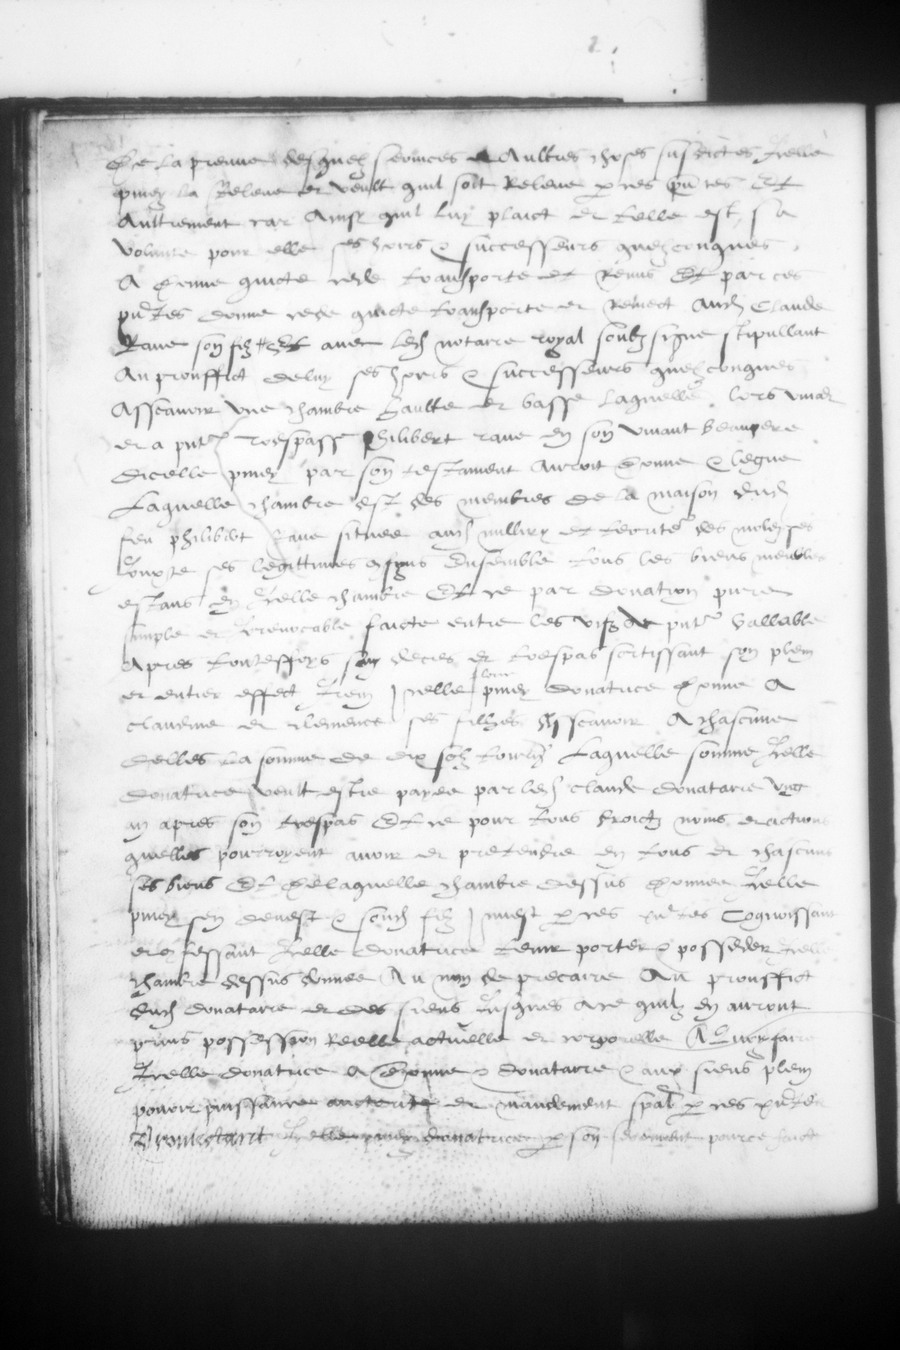 De la preuve desquelz services et Aultres choses susdictes Icelle
pmey la Releve et veult quil soit Releve p ces pntes Et
Aultrement car Ainsy quil luy plaict et telle est sa
volunte pour elle ses hoirs & successeurs quelzconques
A donne quicte cede transporte et remis Et par ces
pntes donne cede quicte transporte et remect Aud Claude
Rave son filz Et avec led notaire royal soubzsigne stipullant
Au prouffict de luy ses hoirs & successeurs quelzconques
Asscavoir une chambre haulte et basse laquelle lors
et a pnt trespasse philibert rave en son vivant beaupere
dicelle pmey par son testament auroit donne & legue
Laquelle chambre est des membres de la maison dud
feu philibert Rave situee
ses legittimes Ensemble tous les biens meubles
estans en Icelle chambre Et ce par donation pure
simple et Irrevocable faicte entre les vifz A pnt Vallable
Apres toutesffoys son deces et trespas sortissant son plein
et entier effect Item Icelle pmey donatrice donne A
claudine et clemence ses filhes Asscavoir A chascune
delles la somme de dix solz tourn Laquelle somme Icelle
donatrice veult estre payee par led Claude donataire ung
an apres son trespas Et ce pour tous droictz noms et actions
quelles pourroyent avoir et pretendre en tous et chascuns
ses biens Et de laquelle chambre dessus donnee Icelle
pmey sen devest & soud filz Invest p ces pntes Cognoissant
et confessant Icelle donatrice tenir porter & posseder Icelle
chambre dessus donnee Au nom de precaire Au prouffict
dud donataire et des siens Jusques ace quilz en auront
prins possession Reelle actuelle et corporelle A Luy faire
Icelle donatrice A donne & donataire & aux siens plein
pouvoir puissance auctorite et mandement spal p ces pntes
Promectant Icelle pmey donatrice p son serement pource faict